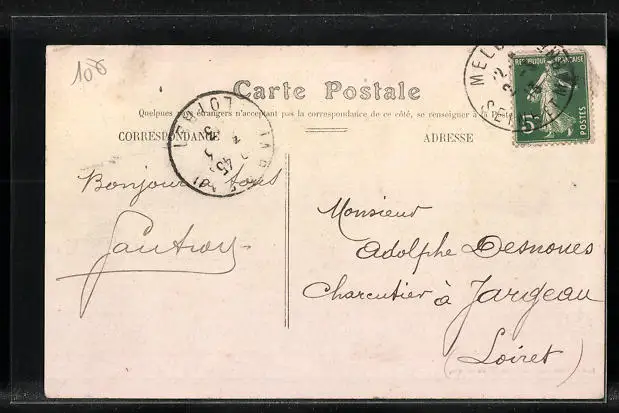 108
Carte Postale
Quelques pays étrangers n'acceptant pas la correspondance de ce côté, se renseigner à la Poste
CORRESPONDANCE
ADRESSE
REPUBLIQUE FRANÇAISE
5c
POSTES
LOIRET
Bonjour à tous
Gautron
Monsieur
Adolphe Desnoues
Charcutier à Jargeau
(Loiret)